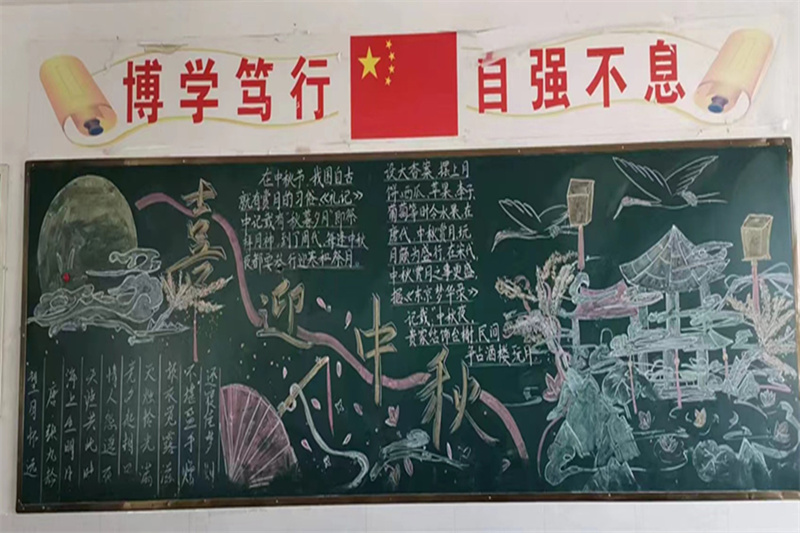 博学笃行
自强不息
喜迎中秋
在中秋节，我国自古
就有赏月的习俗《礼记》
中记载有"秋暮夕月"即拜
拜月神，到了周代，每逢中秋
夜都要举行迎寒和祭月
设大香案，摆上月
饼、西瓜、苹果、李子
葡萄等时令水果，在
唐代，中秋赏月、玩
月颇为盛行，在宋代
中秋赏月之事更盛
据《东京梦华录》
记载，中秋夜
贵家结饰台榭，民间
争占酒楼玩月
望月怀远
唐 张九龄
海上生明月
天涯共此时
情人怨遥夜
竟夕起相思
灭烛怜光满
披衣觉露滋
不堪盈手赠
还寝梦佳期